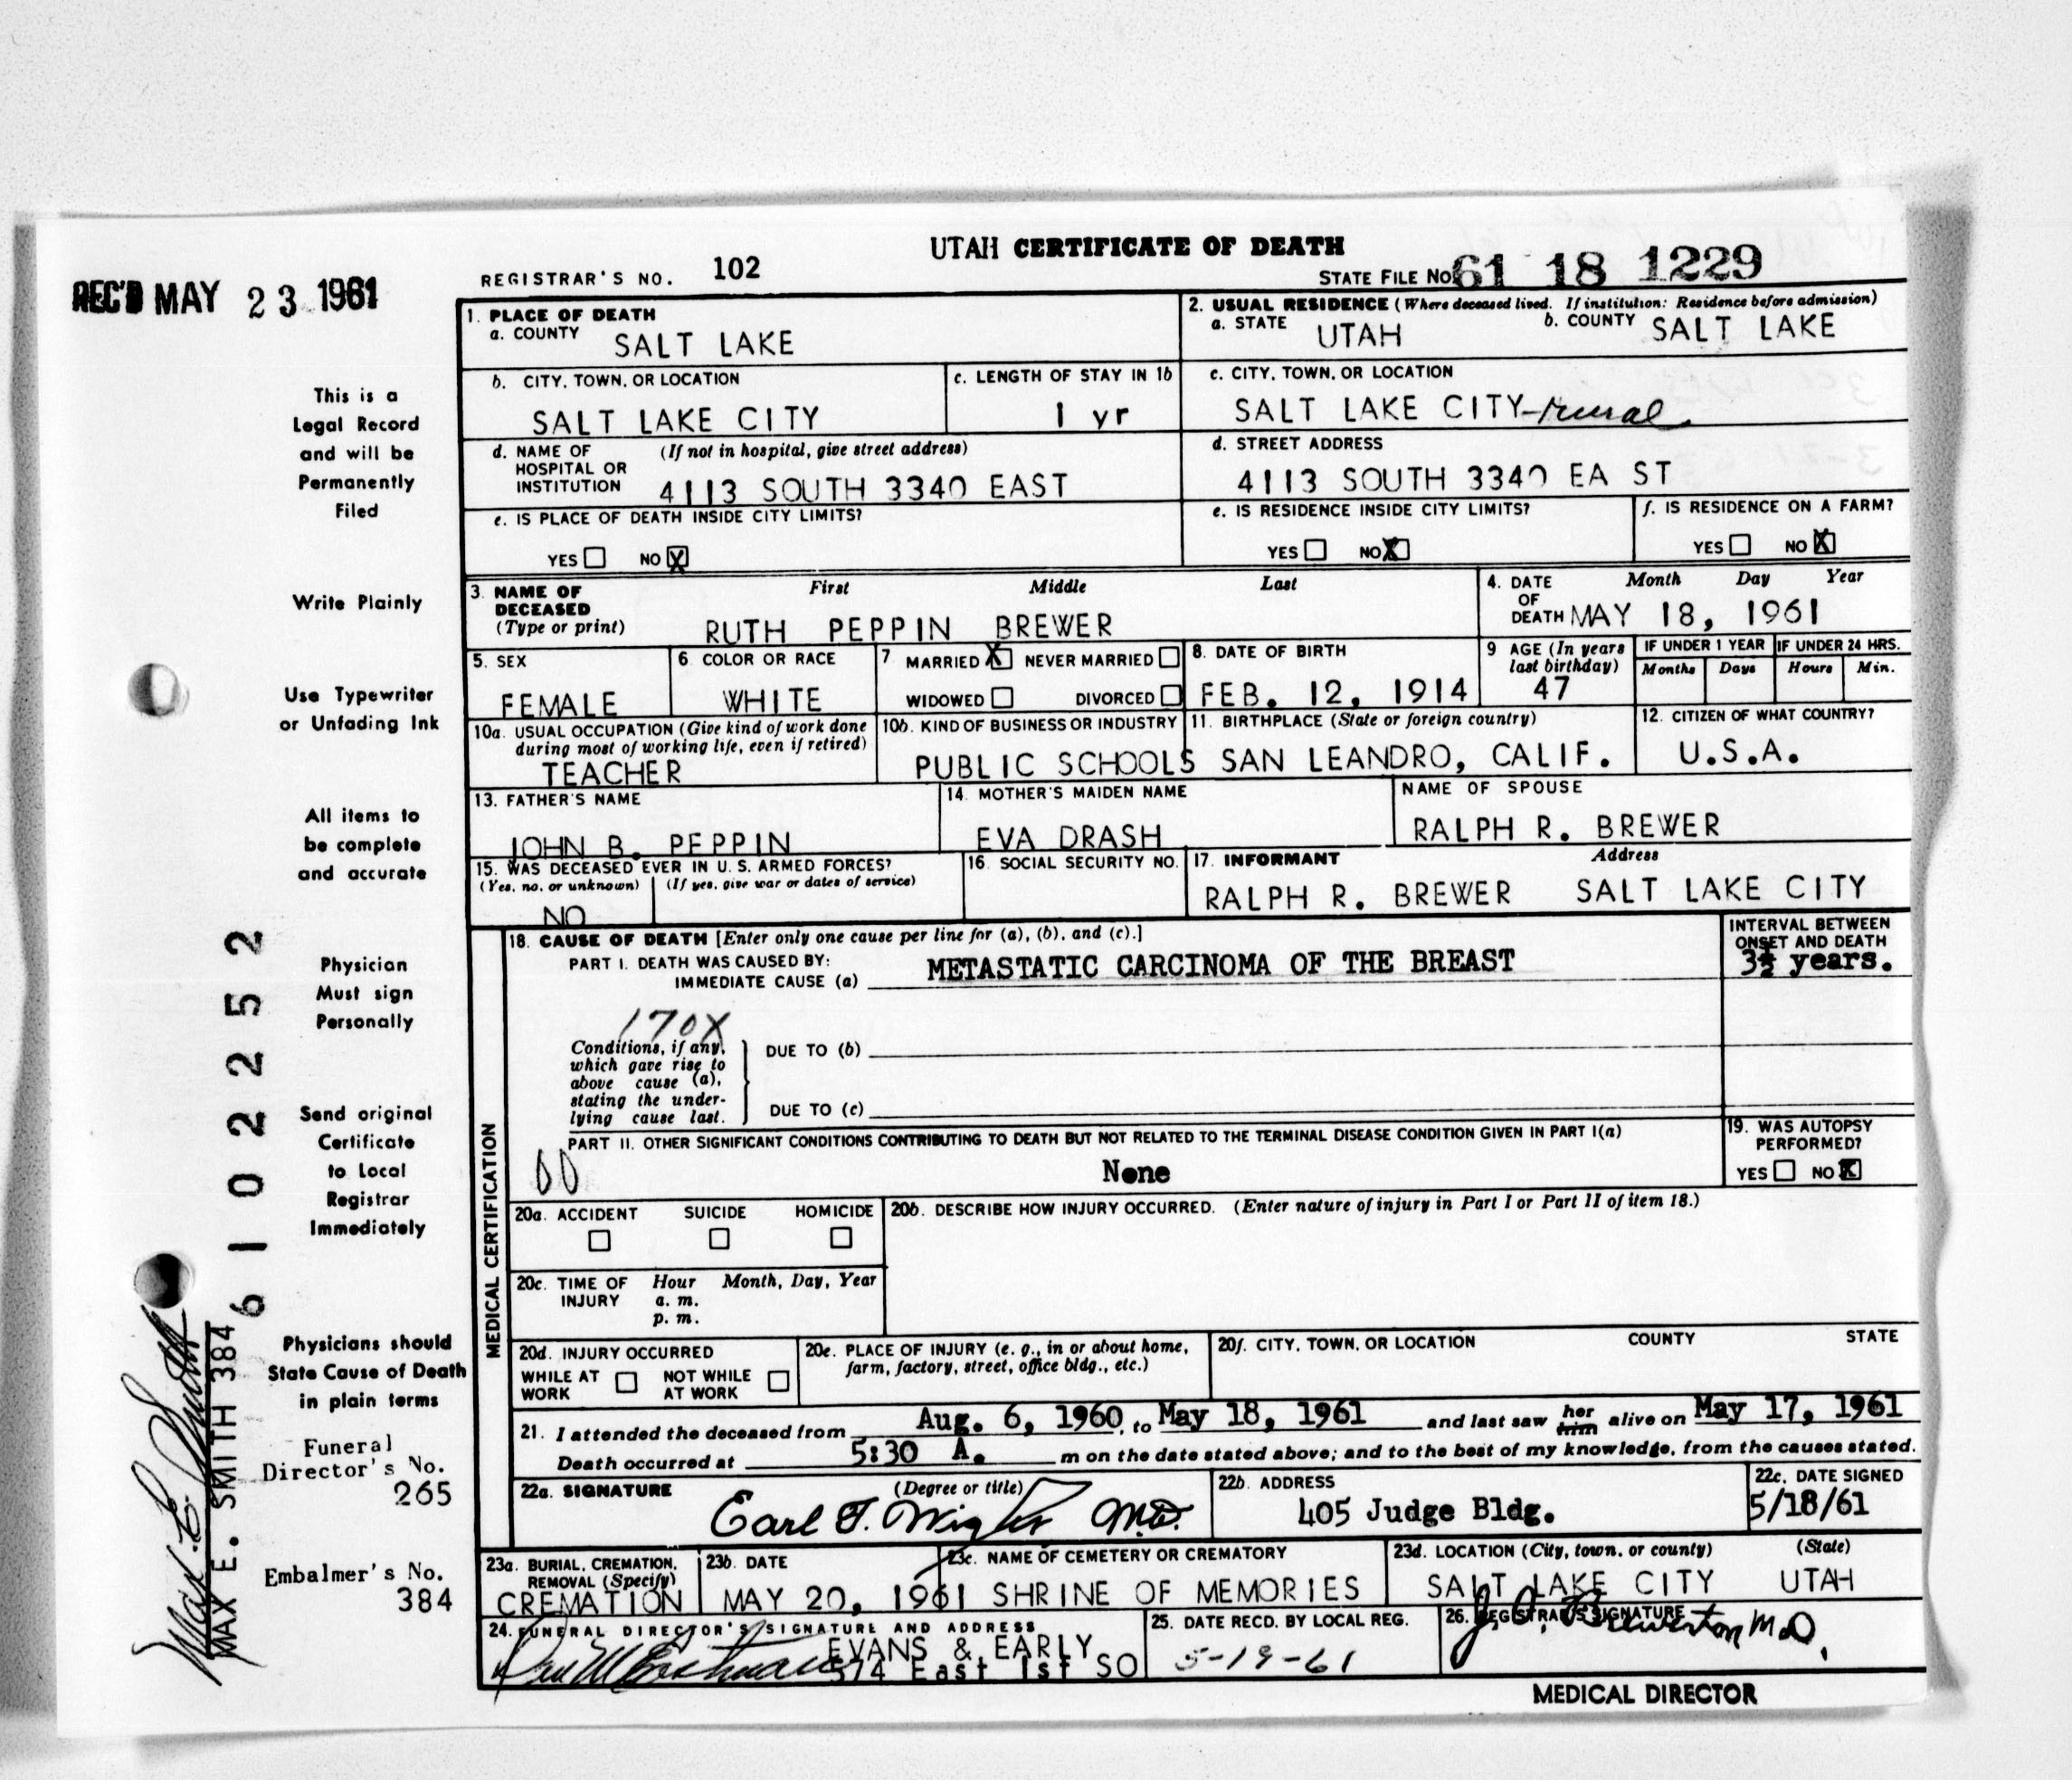 UTAH CERTIFICATE OF DEATH
REGISTRAR'S NO. 102
STATE FILE NO. 61 18 1229
REC'D MAY 23 1961
1. PLACE OF DEATH
a. COUNTY SALT LAKE
2. USUAL RESIDENCE (Where deceased lived. If institution: Residence before admission)
a. STATE UTAH b. COUNTY SALT LAKE
b. CITY, TOWN, OR LOCATION SALT LAKE CITY
c. LENGTH OF STAY IN 1b 1 yr
c. CITY, TOWN, OR LOCATION SALT LAKE CITY-rural
d. NAME OF HOSPITAL OR INSTITUTION (If not in hospital, give street address) 4113 SOUTH 3340 EAST
d. STREET ADDRESS 4113 SOUTH 3340 EA ST
e. IS PLACE OF DEATH INSIDE CITY LIMITS?
YES NO X
e. IS RESIDENCE INSIDE CITY LIMITS?
YES NO X
f. IS RESIDENCE ON A FARM?
YES NO X
3. NAME OF DECEASED (Type or print) First Middle Last
RUTH PEPPIN BREWER
4. DATE OF DEATH Month Day Year
MAY 18, 1961
5. SEX FEMALE
6. COLOR OR RACE WHITE
7 MARRIED X NEVER MARRIED
WIDOWED DIVORCED
8. DATE OF BIRTH FEB. 12, 1914
9 AGE (In years last birthday) 47
IF UNDER 1 YEAR Months Days
IF UNDER 24 HRS. Hours Min.
10a. USUAL OCCUPATION (Give kind of work done during most of working life, even if retired)
TEACHER
10b. KIND OF BUSINESS OR INDUSTRY
PUBLIC SCHOOLS
11. BIRTHPLACE (State or foreign country)
SAN LEANDRO, CALIF.
12. CITIZEN OF WHAT COUNTRY?
U.S.A.
13. FATHER'S NAME
JOHN B. PEPPIN
14. MOTHER'S MAIDEN NAME
EVA DRASH
NAME OF SPOUSE
RALPH R. BREWER
15. WAS DECEASED EVER IN U. S. ARMED FORCES?
(Yes, no, or unknown) (If yes, give war or dates of service)
NO
16. SOCIAL SECURITY NO.
17. INFORMANT Address
RALPH R. BREWER SALT LAKE CITY
MEDICAL CERTIFICATION
18. CAUSE OF DEATH [Enter only one cause per line for (a), (b), and (c).]
INTERVAL BETWEEN ONSET AND DEATH
PART I. DEATH WAS CAUSED BY:
IMMEDIATE CAUSE (a) METASTATIC CARCINOMA OF THE BREAST
3½ years.
170X
Conditions, if any, which gave rise to above cause (a), stating the underlying cause last.
DUE TO (b)
DUE TO (c)
PART II. OTHER SIGNIFICANT CONDITIONS CONTRIBUTING TO DEATH BUT NOT RELATED TO THE TERMINAL DISEASE CONDITION GIVEN IN PART I(a)
None
19. WAS AUTOPSY PERFORMED?
YES NO X
20a. ACCIDENT SUICIDE HOMICIDE
20b. DESCRIBE HOW INJURY OCCURRED. (Enter nature of injury in Part I or Part II of item 18.)
20c. TIME OF INJURY Hour Month, Day, Year
a. m.
p. m.
20d. INJURY OCCURRED
WHILE AT WORK NOT WHILE AT WORK
20e. PLACE OF INJURY (e. g., in or about home, farm, factory, street, office bldg., etc.)
20f. CITY, TOWN, OR LOCATION COUNTY STATE
21. I attended the deceased from Aug. 6, 1960, to May 18, 1961 and last saw her him alive on May 17, 1961
Death occurred at 5:30 A. m on the date stated above; and to the best of my knowledge, from the causes stated.
22a. SIGNATURE (Degree or title)
Earl F. Wight M.D.
22b. ADDRESS
405 Judge Bldg.
22c. DATE SIGNED
5/18/61
23a. BURIAL, CREMATION, REMOVAL (Specify)
CREMATION
23b. DATE
MAY 20, 1961
23c. NAME OF CEMETERY OR CREMATORY
SHRINE OF MEMORIES
23d. LOCATION (City, town, or county) (State)
SALT LAKE CITY UTAH
24. FUNERAL DIRECTOR'S SIGNATURE AND ADDRESS
EVANS & EARLY
574 East 1st SO
25. DATE RECD. BY LOCAL REG.
5-19-61
26. REGISTRAR'S SIGNATURE
MEDICAL DIRECTOR
This is a
Legal Record
and will be
Permanently
Filed
Write Plainly
Use Typewriter
or Unfading Ink
All items to
be complete
and accurate
Physician
Must sign
Personally
Send original
Certificate
to Local
Registrar
Immediately
Physicians should
State Cause of Death
in plain terms
Funeral
Director's No.
265
Embalmer's No.
384
61 02252
Max E. Smith
MAX E. SMITH 384